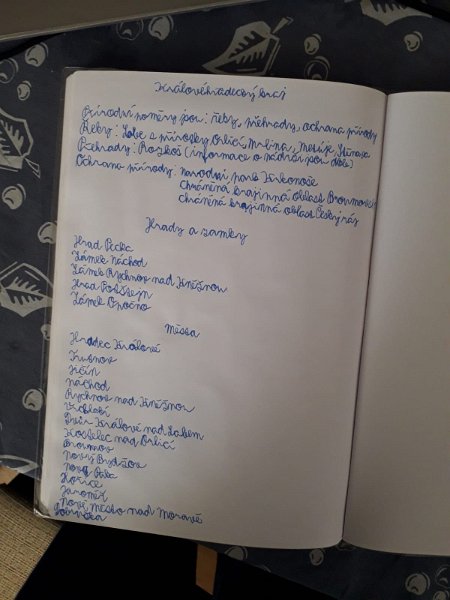 Královéhradecký kraj
Přírodní poměry jsou: řeky, přehrady, ochrana přírody
Řeky: Labe s přítoky Orlicí, Mrlina, Metuje, Stěnava
Přehrady: Rozkoš (informace o nádrži jsou dole)
Ochrana přírody: národní park Krkonoše
chráněná krajinná oblast Broumovsko
chráněná krajinná oblast Český ráj
Hrady a zámky
Hrad Pecka
Zámek Náchod
Zámek Rychnov nad Kněžnou
Hrad Potštejn
Zámek Opočno
Města
Hradec Králové
Trutnov
Jičín
Náchod
Rychnov nad Kněžnou
Vrchlabí
Dvůr Králové nad Labem
Kostelec nad Orlicí
Broumov
Nový Bydžov
Nová Paka
Hořice
Jaroměř
Nové Město nad Moravě
Dobruška